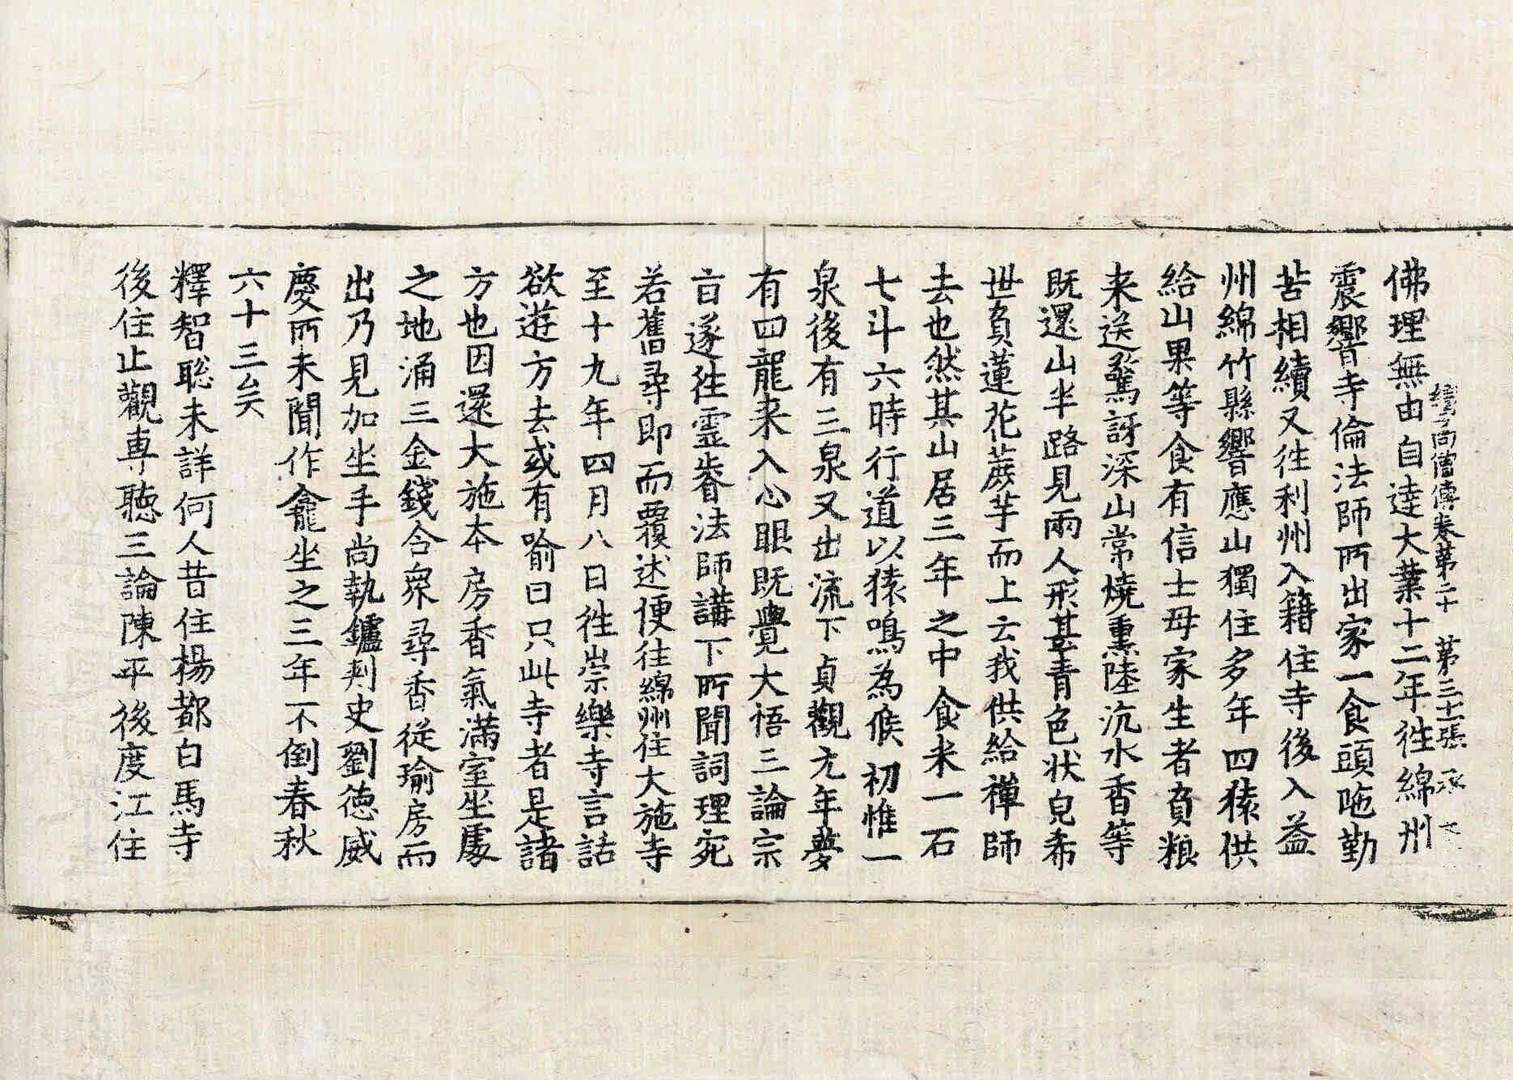 續高僧傳卷第二十 第三十張 承
佛理無由自達大業十二年徃綿州
震響寺倫法師所出家一食頭陁勤
苦相續又徃利州入籍住寺後入益
州綿竹縣響應山獨住多年四猿供
給山果等食有信士母家生者負粮
来送驚訝深山常燒熏陸沉水香等
既還山半路見兩人形甚青色狀皃希
世負蓮花蔗芋而上云我供給禪師
去也然其山居三年之中食米一石
七斗六時行道以猿鳴為候初惟一
泉後有三泉又出流下貞觀元年夢
有四龍来入心眼既覺大悟三論宗
旨遂徃霊睿法師講下所聞詞理宛
若舊尋即而覆述便往綿州住大施寺
至十九年四月八日徃崇樂寺言話
欲遊方去或有喻曰只此寺者是諸
方也因還大施本房香氣滿室坐處
之地涌三金錢合衆尋香従瑜房而
出乃見加坐手尚執鑪刾史劉德威
慶所未聞作龕坐之三年不倒春秋
六十三矣
釋智聡未詳何人昔住楊都白馬寺
後住止觀専聽三論陳平後度江住